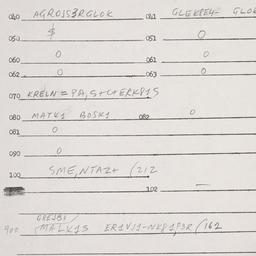 040 AGROJSBRGLOK 041 GLEKPE4- GLOK
050 $ 051 0
060 0 061 0
062 0 063 0
070 KRELN=PA,S+C+ERKP1S
080 MATK1 BOSK1 082 0
081 0
090 0
100 SME,NTAZ+ (212
102 —
GREJB1/
400 (MALK1S ER1VJ1-NKP1P3R/162